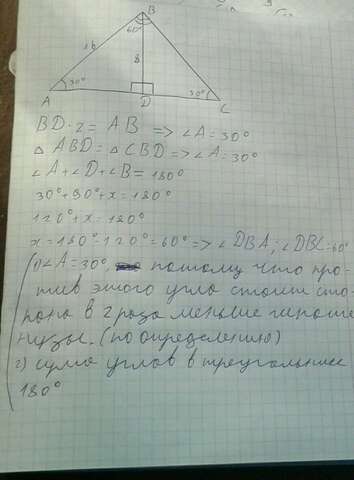 B
60°
16
8
30°
30°
A
D
C
BD·2 = AB => ∠A = 30°
△ ABD = △ CBD => ∠A = 30°
∠A + ∠D + ∠B = 180°
30° + 90° + x = 180°
120° + x = 180°
x = 180° - 120° = 60° => ∠DBA; ∠DBC = 60°
1) ∠A = 30°, потому что про-
тив этого угла стоит сто-
рона в 2 раза меньше гипоте
нузы. (по определению)
2) сумма углов в треугольнике
180°